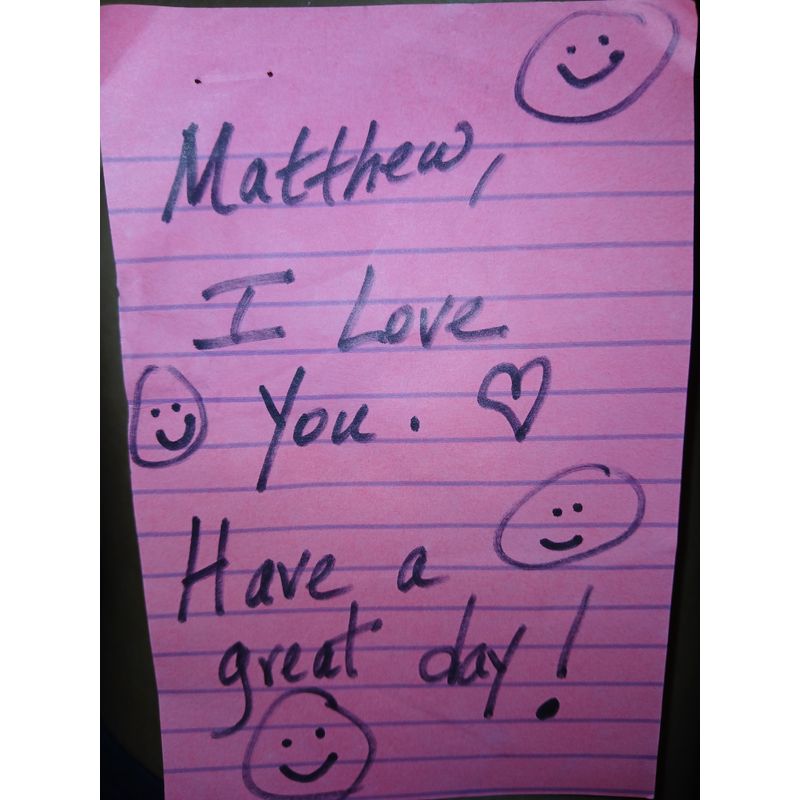 Matthew,
I Love
You.
Have a
great day!